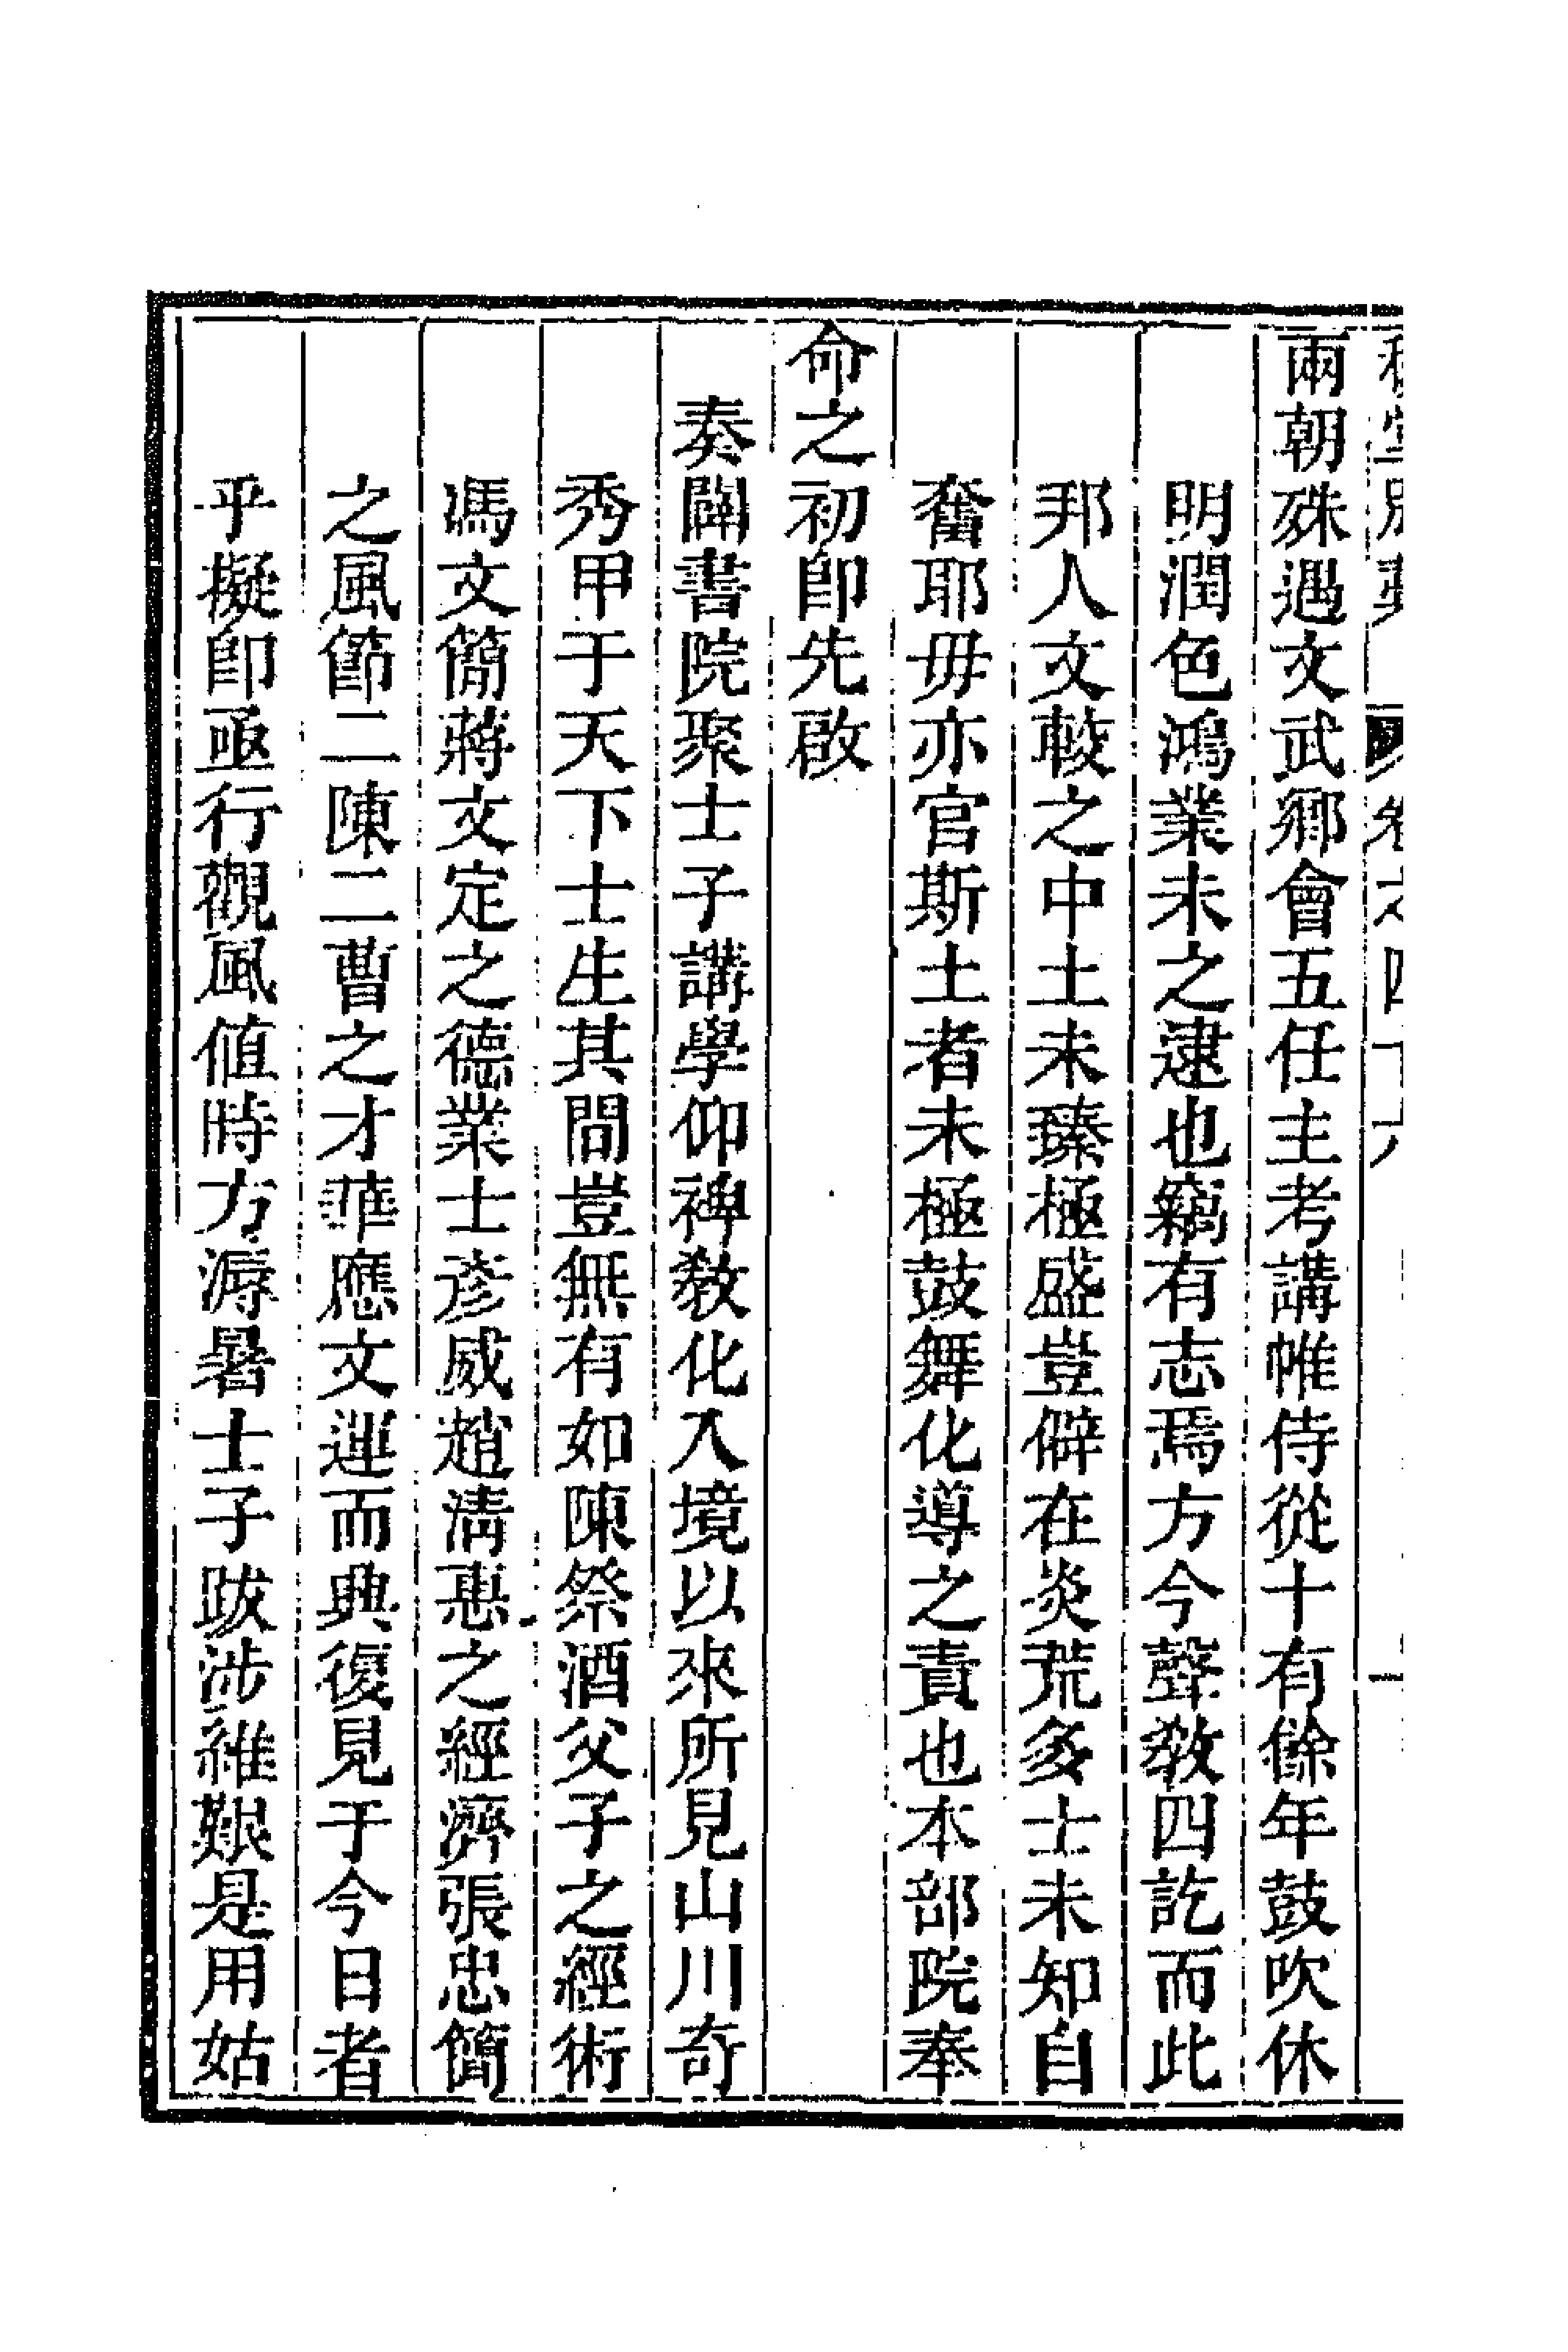 兩朝殊遇文武鄉會五任主考講帷侍從十有餘年鼓吹休
明潤色鴻業未之逮也竊有志焉方今聲敎四訖而此
邦人文較之中土未臻極盛豈僻在炎荒多士未知自
奮耶毋亦官斯土者未極鼓舞化導之責也本部院奉
命之初卽先啟
奏闢書院聚士子講學仰裨敎化入境以來所見山川奇
秀甲于天下士生其間豈無有如陳祭酒父子之經術
馮文簡蔣文定之德業士彥威趙淸惠之經濟張忠簡
之風節二陳二曹之才華應文運而典復見于今日者
乎擬卽亟行觀風値時方溽暑士子跋涉維艱是用姑